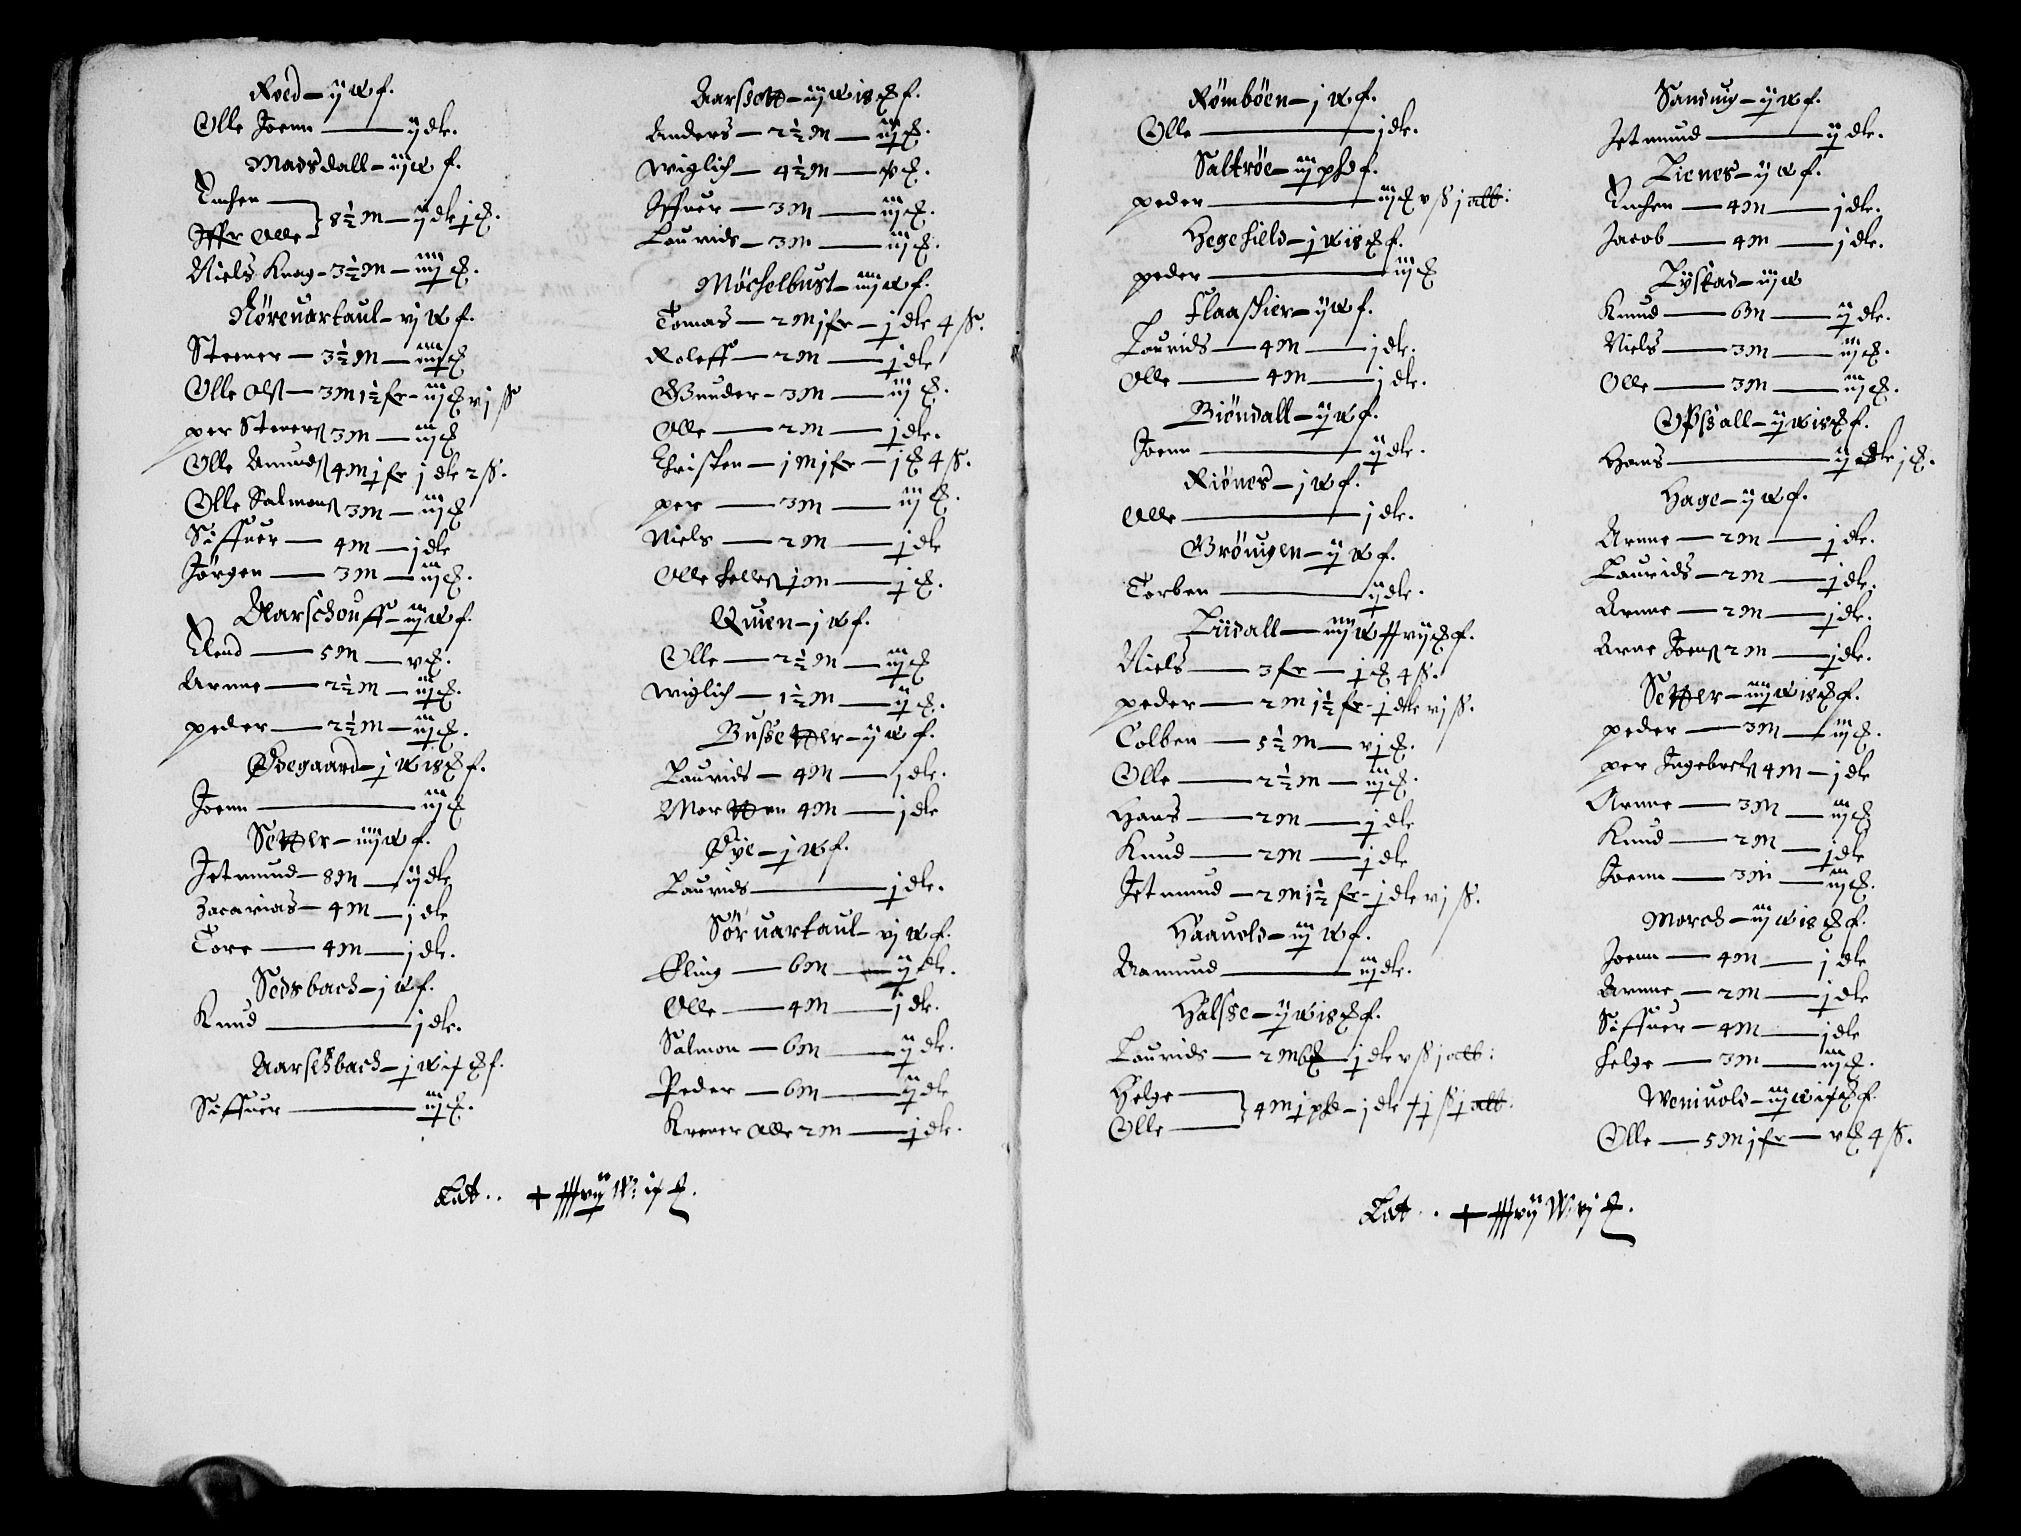 Roed — ij w f.
Olle Joenn — ij dlr.
Madsdall — iij w f.
Knusen
Iffr Olle — 8½ m — ij dlr j ß.
Niels Krag — 3½ m — iiij ß.
Nöreuartaul — vj w f.
Steener — 3½ m — iiij ß
Olle Olß — 3 m 1½ fr — iij ß vj ß
per Steenerß 3 m — iij ß
Olle Amundß 4 m j fr j dlr 2 ß.
Olle Salmonß 3 m — iij ß
Siffuer — 4 m — j dlr
Jørgen — 3 m — iij ß.
Aarschouff — iij w f.
Elend — 5 m — v ß.
Arnne — 2½ m — iij ß.
peder — 2½ m — iij ß.
Ødegaard — j w 18 ß f.
Joenn — iij ß
Setter — iiij w f.
Jetmund — 8 m — ij dlr
Zacarias — 4 m — j dlr
Tore — 4 m — j dlr.
Sedsbach — j w f.
Knud — j dlr.
Aarsetbach — j w if ß f.
Siffuer — iij ß.
Aarssett — iij w 18 ß f.
Anders — 2½ m — iij ß.
Wiglich — 4½ m — v ß.
Iffuer — 3 m — iij ß.
Laurids — 3 m — iij ß.
Möchelbust — iiij w f.
Tomas — 2 m j fr — j dlr 4 ß.
Roleff — 2 m — j dlr
Gunder — 3 m — iij ß.
Olle — 2 m — j dlr.
Christen — j m j fr — j ß 4 ß.
per — 3 m — iij ß.
Niels — 2 m — j dlr
Olle helleß j m — j ß.
Quien — j w f.
Olle — 2½ m — iij ß
Wiglich — 1½ m — ij ß.
Bussetter — ij w f.
Laurids — 4 m — j dlr.
Mortten 4 m — j dlr
Øye — j w f.
Laurids — j dlr.
Söruartaul — vj w f.
Elling — 6 m — ij dlr.
Olle — 4 m — j dlr.
Salmon — 6 m — ij dlr.
Peder — 6 m — ij dlr
Krener Olle 2 m — j dlr.
Lat..
Römböen — j w f.
Olle — j dlr.
Saltröe — iij pd f.
peder — iij ß v ß j alb:
Hegehield — j w 18 ß f.
peder — iij ß
Flaashier — ij w f.
Laurids — 4 m — j dlr.
Olle — 4 m — j dlr.
Biöndall — ij w f.
Joenn — ij dlr.
Riönes — j w f.
Olle — j dlr.
Gröuigen — ij w f.
Torben — ij dlr.
Niels — 3 fr — j ß 4 ß.
peder — 2 m 1½ fr — j dlr vj ß.
Colben — 5½ m — vj ß.
Olle — 2½ m — iij ß.
Hans — 2 m — j dlr
Knud — 2 m — j dlr
Jetmund — 2 m 1½ fr — j dlr vj ß.
Haauold — iij w f.
Aamund — iij dlr.
Halsse — ij w 18 ß f.
Laurids — j dlr v ß j alb:
Helge
Olle — 4 m j pd — j dlr
Sanduig — ij w f.
Jetmund — ij dlr.
Lienes — ij w f.
Knusen — 4 m — j dlr.
Jacob — 4 m — j dlr.
Lystad — iij w
Knud — 6 m — ij dlr.
Niels — 3 m — iij ß.
Olle — 3 m — iij ß.
Opsall — ij w 18 ß f.
Hans — ij dlr j ß.
Hage — ij w f.
Arnne — 2 m — j dlr.
Laurids — 2 m — j dlr.
Arnne — 2 m — j dlr.
Arne Joenß 2 m — j dlr.
Setter — iiij w 18 ß f.
peder — 3 m — iij ß.
per Ingebretß 4 m — j dlr
Arnne — 3 m — iij ß
Knud — 2 m — j dlr
Joenn — 3 m — iij ß.
Morch — iij w 18 ß f.
Joenn — 4 m — j dlr
Arnne — 2 m — j dlr
Siffuer — 4 m — j dlr
helge — 3 m — iij ß.
Weniuold — iij w if ß f.
Olle — 5 m j fr — v ß 4 ß.
Lat..